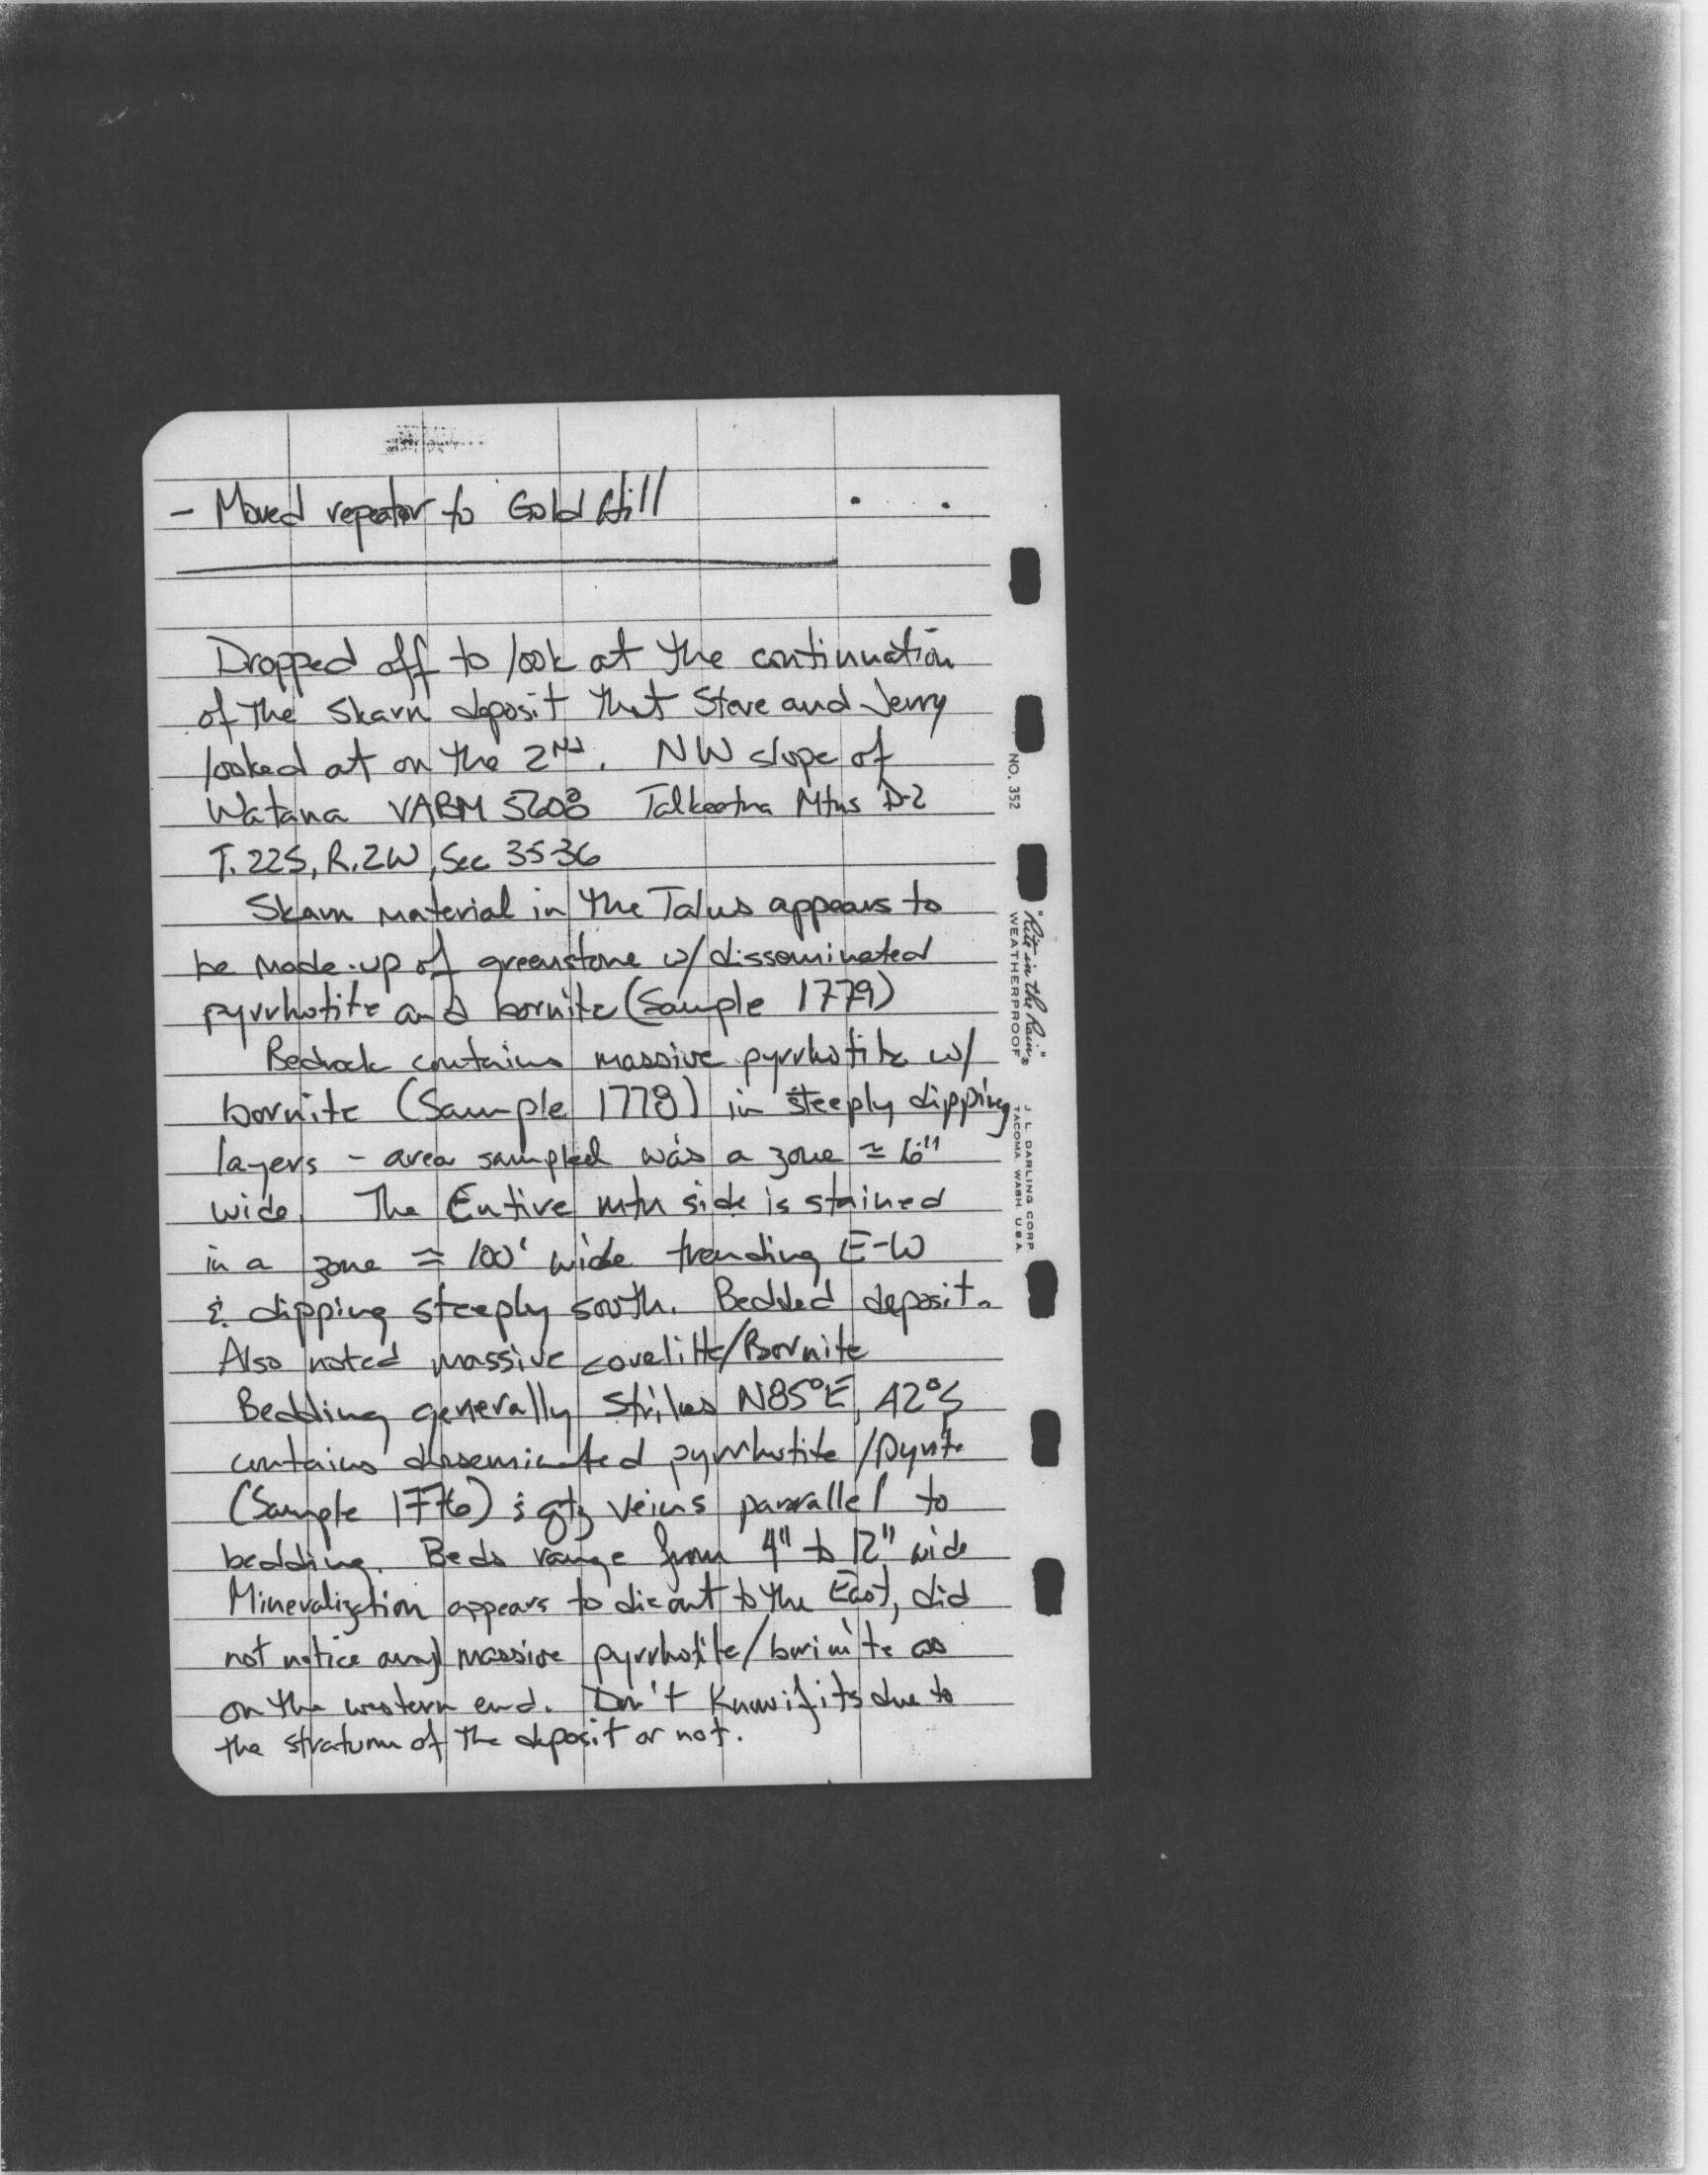 - Moved repeator to Gold Hill
Dropped off to look at the continuation
of the skarn deposit that Steve and Jerry
looked at on the 2nd. NW slope of
Watana VABM 5608 Talkeetna Mtns D-2
T. 22S, R. 2W, Sec 35 36
Skarn material in the Talus appears to
be made-up of greenstone w/ disseminated
pyrrhotite and bornite (Sample 1779)
Bedrock contains massive pyrrhotite w/
bornite (Sample 1778) in steeply dipping
layers - area sampled was a zone ≃ 6"
wide. The Entire mtn side is stained
in a zone ≃ 100' wide trending E-W
& dipping steeply south. Bedded deposit.
Also noted massive covelitte/Bornite
Bedding generally strikes N85°E, 42°S
contains disseminated pyrrhotite/pyrite
(Sample 1776) & qtz veins parrallel to
bedding. Beds range from 4" to 12" wide
Mineralization appears to die out to the East, did
not notice any massive pyrrhotite/bornite as
on the western end. Don't know if its due to
the stratum of the deposit or not.
NO. 352
"Rite in the Rain"
WEATHERPROOF
J. L. DARLING CORP
TACOMA, WASH. U.S.A.